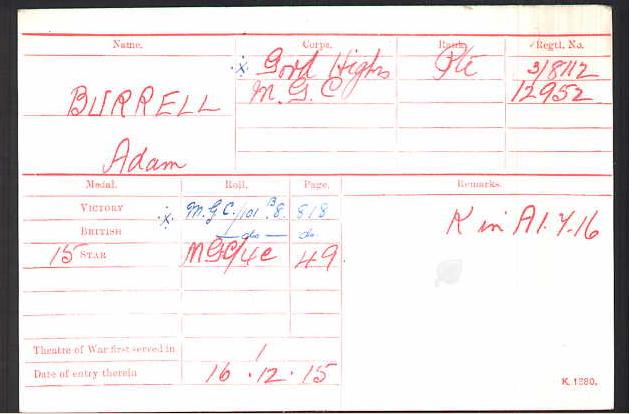 Name. Corps. Rank. Regtl. No.
·X· Gord Highs Pte 3/8112
BURRELL M.G.C. 12952
Adam
Medal. Roll. Page. Remarks.
VICTORY ·X· M.G.C./101 B.8. 818
BRITISH — do — do.
15 STAR MGC/4C 49
K in A 1.7.16
Theatre of War first served in 1
Date of entry therein 16.12.15
K. 1380.